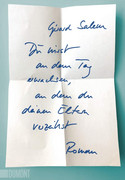 Gérard Salem
Du wirst
an dem Tag
erwachsen,
an dem du
deinen Eltern
verzeihst
Roman